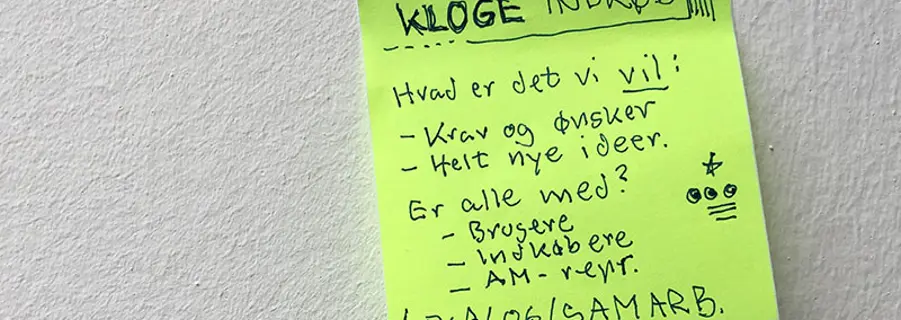 KLOGE INDKØB
Hvad er det vi vil:
- Krav og ønsker
- Helt nye ideer.
Er alle med?
- Brugere
- Indkøbere
- AM-repr.
DIALOG/SAMARB.